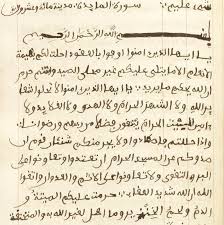 شىء عليم سورة المائدة مدنية مائة وعشرون
بسم الله الرحمن الرحيم
يا ايها الذين امنوا اوفوا بالعقود احلت لكم بهيمة
الانعام الا ما يتلى عليكم غير محلى الصيد وانتم حرم
ان الله يحكم ما يريد يا ايها الذين امنوا لا تحلوا شعا
ئر الله ولا الشهر الحرام ولا الهدى ولا القلائد ولا
امين البيت الحرام يبتغون فضلا من ربهم ورضوانا
واذا حللتم فاصطادوا ولا يجرمنكم شنئان قوم ان
صدوكم عن المسجد الحرام ان تعتدوا وتعاونوا على
البر والتقوى ولا تعاونوا على الاثم والعدوان واتقوا
الله ان الله شديد العقاب حرمت عليكم الميتة و
الدم ولحم الخنزير وما اهل لغير الله به والمنخنقة